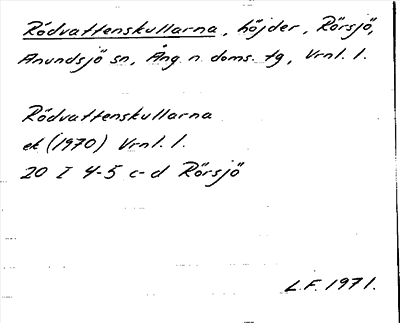 Rödvattenskullarna, höjder, Rörsjö,
Anundsjö sn, Ång. n doms. tg, Vrnl. l.
Rödvattenskullarna
ek (1970) Vrnl. l.
20 I 4-5 c-d Rörsjö
L.F. 1971.